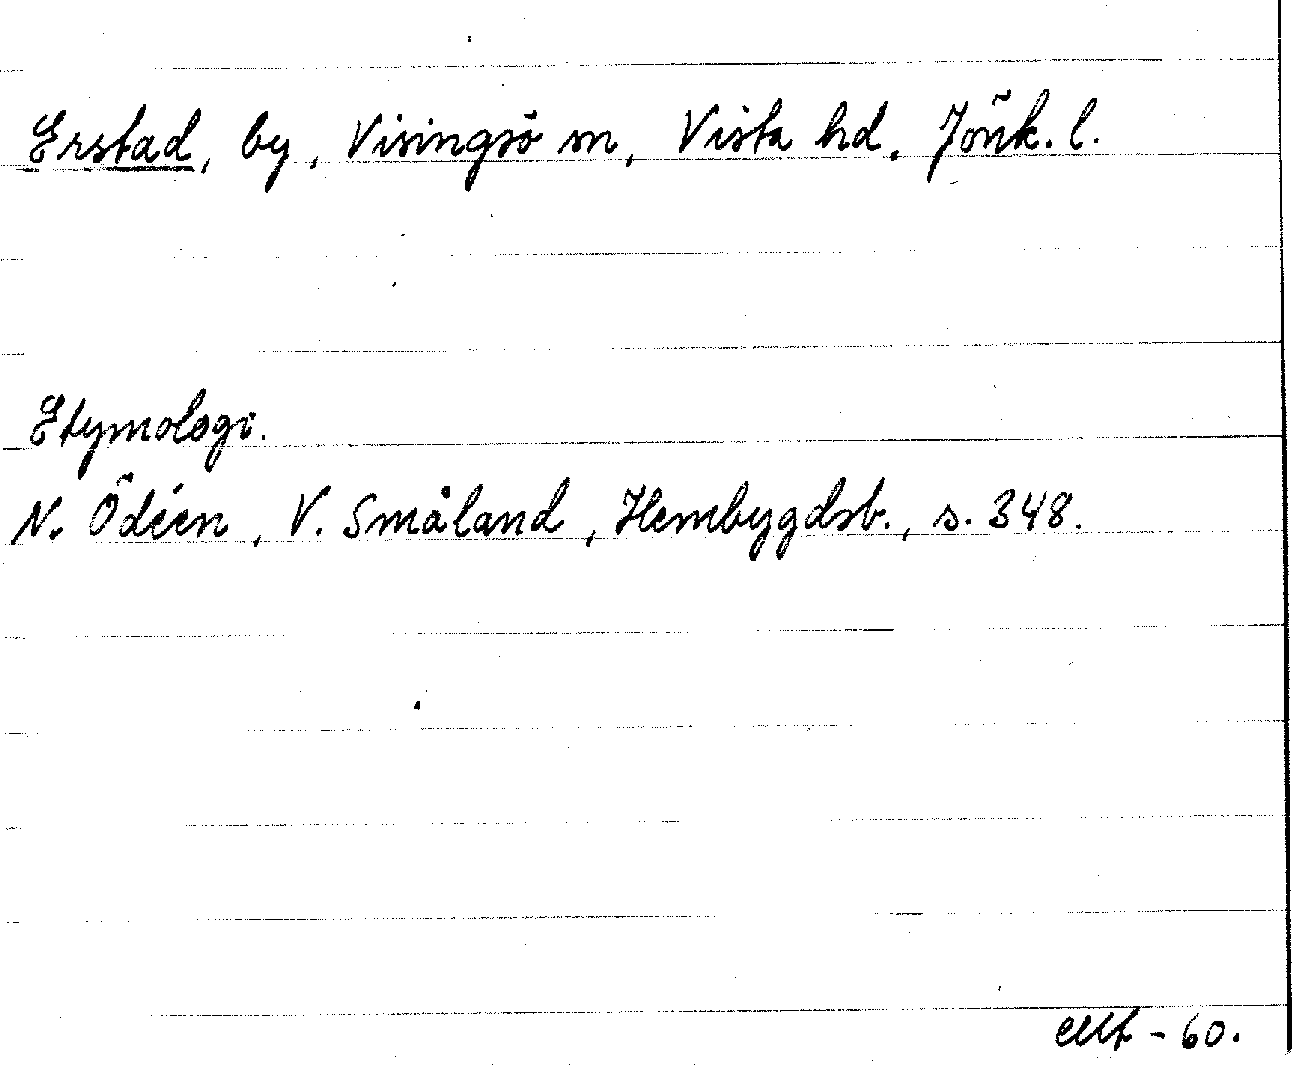 Erstad, by, Visingsö sn, Vista hd, Jönk. l.
Etymologi.
N. Ödéen, V. Småland, Hembygdsb., s. 348.
- 60.